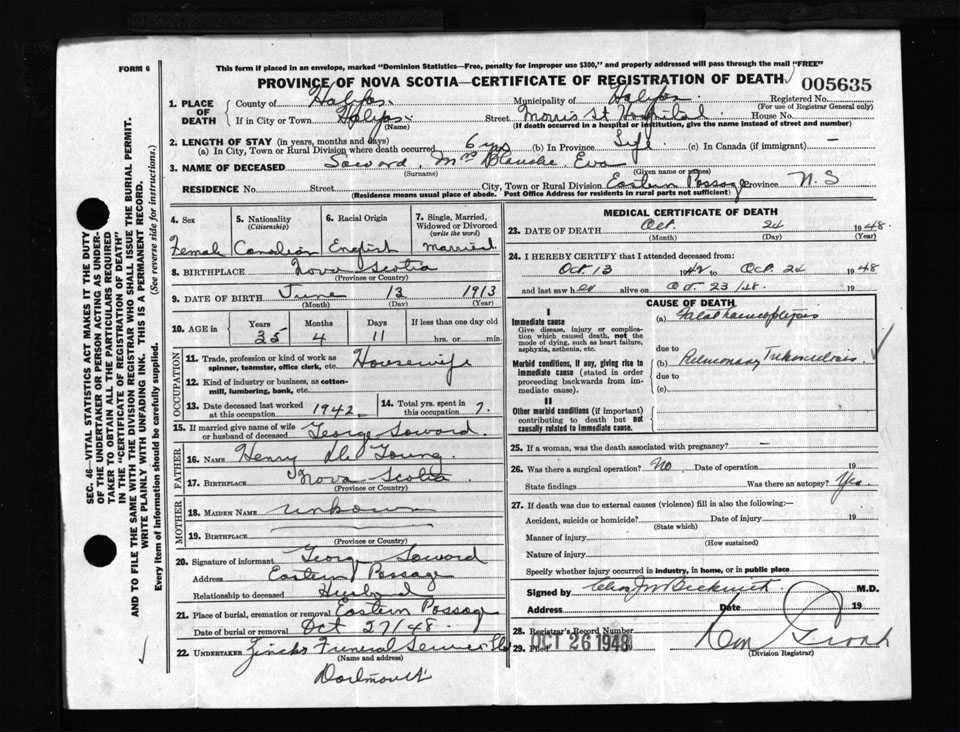 FORM 6
This form if placed in an envelope, marked "Dominion Statistics—Free, penalty for improper use $300," and properly addressed will pass through the mail "FREE"
PROVINCE OF NOVA SCOTIA—CERTIFICATE OF REGISTRATION OF DEATH
005635
Registered No.
(For use of Registrar General only)
1. PLACE OF DEATH
County of Halifax. Municipality of Halifax.
If in City or Town Halifax. Street Morris St Hospital House No.
(Name) (If death occurred in a hospital or institution, give the name instead of street and number)
2. LENGTH OF STAY (in years, months and days)
(a) In City, Town or Rural Division where death occurred 6 yrs (b) In Province Life (c) In Canada (if immigrant) —
3. NAME OF DECEASED Soward, Mrs Blanche Eva
(Surname) (Given name or names)
RESIDENCE No. Street City, Town or Rural Division Eastern Passage Province N. S
(Residence means usual place of abode. Post Office Address for residents in rural parts not sufficient)
4. Sex
Female
5. Nationality (Citizenship)
Canadian
6. Racial Origin
English
7. Single, Married, Widowed or Divorced (write the word)
married
8. BIRTHPLACE Nova Scotia
(Province or Country)
9. DATE OF BIRTH June 13 1913
(Month) (Day) (Year)
10. AGE in
Years Months Days If less than one day old
35 4 11 hrs. or min.
OCCUPATION
11. Trade, profession or kind of work as spinner, teamster, office clerk, etc. Housewife
12. Kind of industry or business, as cotton-mill, lumbering, bank, etc.
13. Date deceased last worked at this occupation 1942
14. Total yrs. spent in this occupation 7.
15. If married give name of wife or husband of deceased George Soward.
FATHER
16. NAME Henry De Young.
17. BIRTHPLACE Nova Scotia
(Province or Country)
MOTHER
18. MAIDEN NAME unkown
19. BIRTHPLACE
(Province or Country)
20. Signature of informant Georg Soward
Address Eastern Passage
Relationship to deceased Husband
21. Place of burial, cremation or removal Eastern Passage
Date of burial or removal Oct 27/48.
22. UNDERTAKER Zincks Funeral
(Name and address)
Dartmouth
MEDICAL CERTIFICATE OF DEATH
23. DATE OF DEATH Oct. 24 1948.
(Month) (Day) (Year)
24. I HEREBY CERTIFY that I attended deceased from:
Oct 13 1948 to Oct. 24 1948
and last saw her alive on Oct. 23/48. 19
CAUSE OF DEATH
I
Immediate cause
Give disease, injury or complication which caused death, not the mode of dying, such as heart failure, asphyxia, asthenia, etc.
(a) Fatal haemoptysis
due to
Morbid conditions, if any, giving rise to immediate cause (stated in order proceeding backwards from immediate cause).
(b) Pulmonary Tuberculosis
due to
(c)
II
Other morbid conditions (if important) contributing to death but not causally related to immediate cause.
25. If a woman, was the death associated with pregnancy? —
26. Was there a surgical operation? No Date of operation 19
State findings Was there an autopsy? Yes.
27. If death was due to external causes (violence) fill in also the following:—
Accident, suicide or homicide? Date of injury 19
(State which)
Manner of injury
(How sustained)
Nature of injury
Specify whether injury occurred in industry, in home, or in public place
Signed by M.D.
Address Date 19
28. Registrar's Record Number
29. Filed OCT 26 1948
(Division Registrar)
SEC. 46—VITAL STATISTICS ACT MAKES IT THE DUTY
OF THE UNDERTAKER OR PERSON ACTING AS UNDER-
TAKER TO OBTAIN ALL THE PARTICULARS REQUIRED
IN THE "CERTIFICATE OF REGISTRATION OF DEATH"
AND TO FILE THE SAME WITH THE DIVISION REGISTRAR WHO SHALL ISSUE THE BURIAL PERMIT.
WRITE PLAINLY WITH UNFADING INK. THIS IS A PERMANENT RECORD.
Every item of information should be carefully supplied. (See reverse side for instructions.)